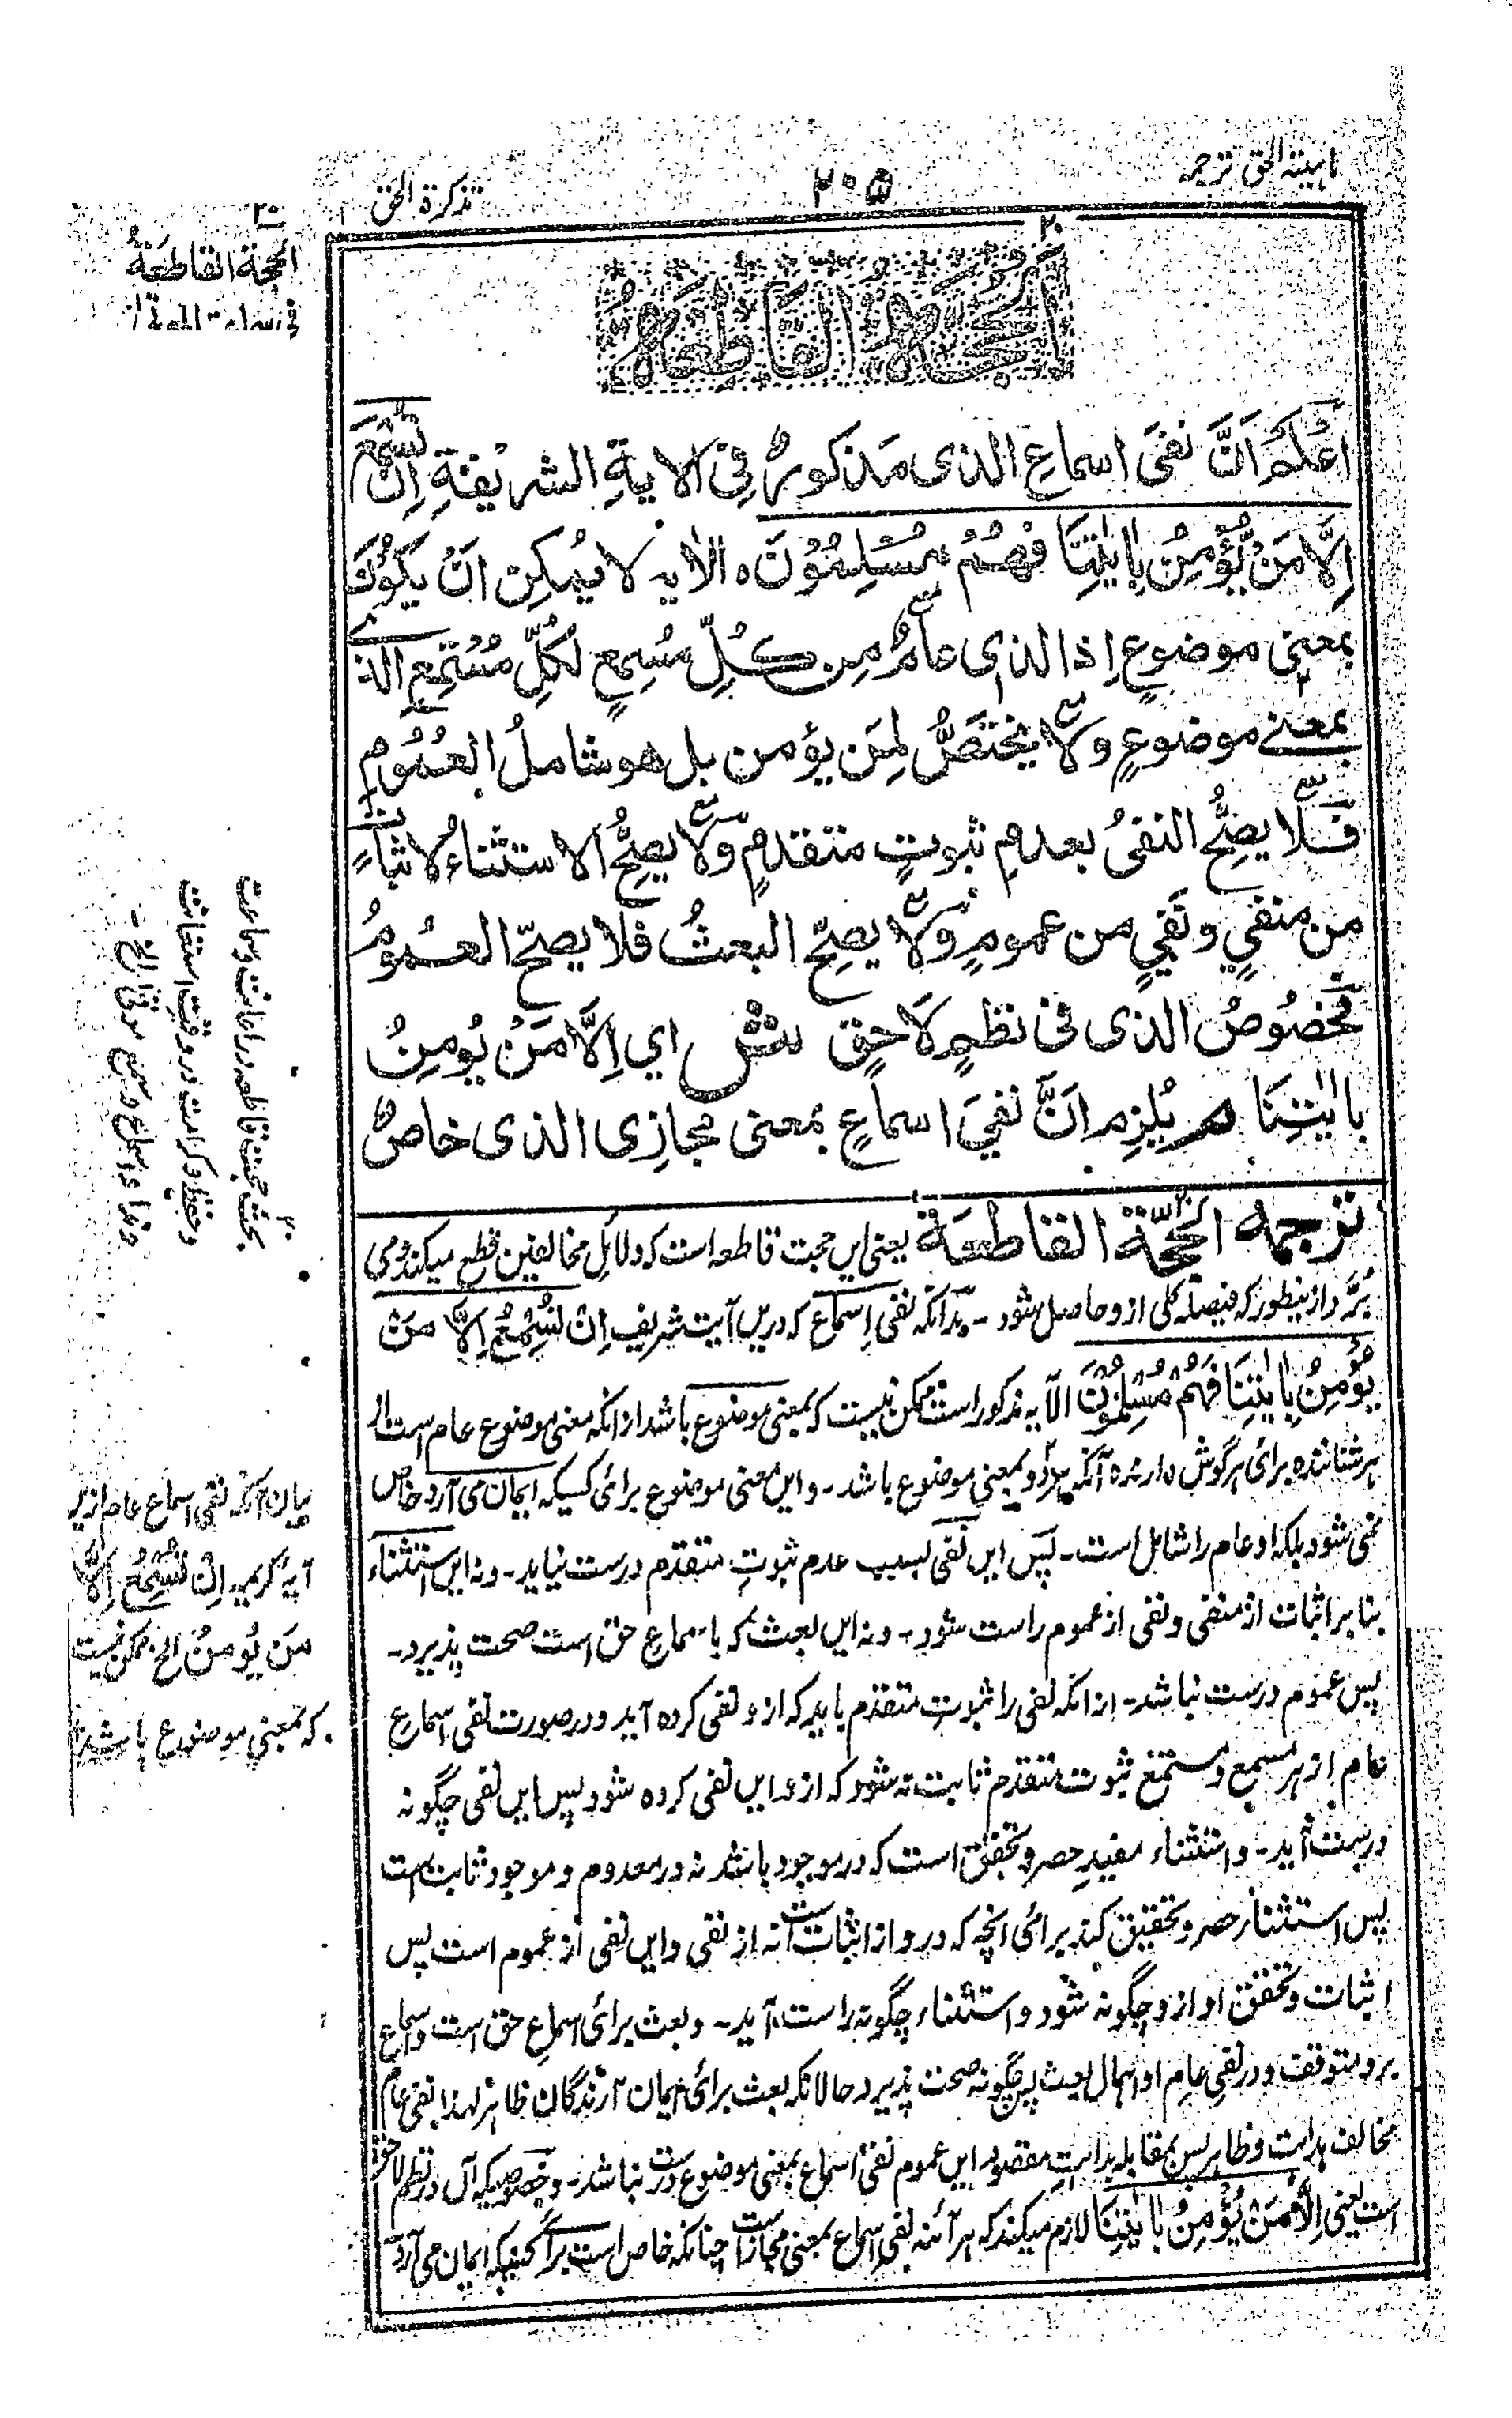 اہینۃ الحق ترجمہ
۲۰۵
تذکرۃ الحق
۲۰
اَلْحُجَّۃُ الْقَاطِعَۃُ
اعْلَمْ اَنَّ نفیَ اسماعِ الذی مَذکورٌ فِی الایۃِ الشریفۃِ اِنْ تُسْمِعُ
اِلَّا مَنْ یُّؤْمِنُ بِاٰیٰتِنَا فَهُمْ مُسْلِمُوْنَ ہ الاٰیہ لایُمکِن انَّ یکَوُنَ
بمعنی موضوعٍ اِذا لذی عامٌ مِن کُلِّ مُسمِعٍ لکُلِّ مُسْتَمِعِ الذی
بمعنے موضوعٍ ولا یختَصُّ لِمَن یؤمن بل هو شاملُ العُمُوْمِ
فَلَا یصِحُّ النفیُ بعدمِ ثبوتٍ متقدمٍ وَلا یصِحُّ الاستثناءُ لاثباتٍ
من منفیٍ ونفیٍ من عمومٍ ولا یصِحّ البعثُ فلا یصحّ العمومُ
فخصُوصُ الذی فی نظمٍ لاحِق ش ای اِلَّا مَنْ یُومِنُ
باٰیٰتِنَا م یُلزِم اَنَّ نفیَ اسماعٍ بمعنی مجازِی الذی خاصٌ
ترجمہ الحُجّۃ القاطعَۃ یعنی ایں حجت قاطعہ است کہ دلائل مخالفین قطع میکند و می
بُرَّد از ینطور کہ فیصلہ کلی از و حاصل شود ۔ بدانکہ نفی اِسماع کہ دریں آیت شریف اِنْ تُسْمِعُ اِلَّا مَنْ
یُؤْمِنُ بِاٰیٰتِنَا فَهُمْ مُسْلِمُوْنَ الآیہ مذکور است ممکن نیست کہ بمعنی موضوع باشد از انکہ معنی موضوع عام است از
ہر شنانندہ برای ہر گوش دارندہ آنکہ ہر دو بمعنی موضوع باشد ۔ و ایں معنی موضوع برائی کسیکہ ایمان می آرد خاص
نمی شود بلکہ او عام را شامل است ۔ پس ایں نفی بسبب عدم ثبوتِ متقدم درست نیاید ۔ و نہ ایں استثناء
بنا بر اثبات از منفی و نفی از عموم راست شود ۔ و نہ ایں بعث کہ با سماع حق است صحت پذیرد ۔
پس عموم درست نباشد ۔ از انکہ نفی را ثبوتِ متقدم باید کہ از و نفی کردہ آید و در صورت نفی اسماع
عام از ہر مسمع و مستمع ثبوت متقدم ثابت نہ شود کہ از و ایں نفی کردہ شود پس ایں نفی چگونہ
درست آید ۔ و استثناء مفیدِ حصر و تحقق است کہ در موجود باشد نہ در معدوم و موجود ثابت است
پس استثناء حصر و تحقیق کند برائی انچہ کہ درو از اثبات است نہ از نفی و ایں نفی از عموم است پس
اثبات و تحقق او از و چگونہ شود و استثناء چگونہ راست آید ۔ و بعث برائی اسماع حق است و اسماع
برو متوقف و در نفی عام او اہمال بعث پس چگونہ صحت پذیرد حالانکہ بعث برائی ایمان آرندگان ظاہر لہذا نفی عام
مخالف بداہت و ظاہر پس بمقابلہ بداہتِ مقصود ایں عموم نفی اسماع بمعنی موضوع درست نباشد ۔ و خصوصیکہ آں در نظم لاحق
است یعنی اِلَّا مَنْ یُّؤْمِنُ بِاٰیٰتِنَا لازم میکند کہ ہر آئنہ نفی اسماع بمعنی مجاز است چنانکہ خاص است برائے کسیکہ ایمان می آرد
۲۰
الحجۃ القاطعَۃُ
۲۰
بحث حجت قاطعہ در اعانت و سماعت
و حفظ و کرامت در وقت استغاثت
و نداء و اسماع و سمع موتی الخ ۔
بیان آنکہ نفی اسماع عام ازیں
آیۂ کریمہ اِنْ تُسْمِعُ اِلَّا
مَن یُومنُ الخ ممکن نیست
کہ بمعنی موضوع باشد